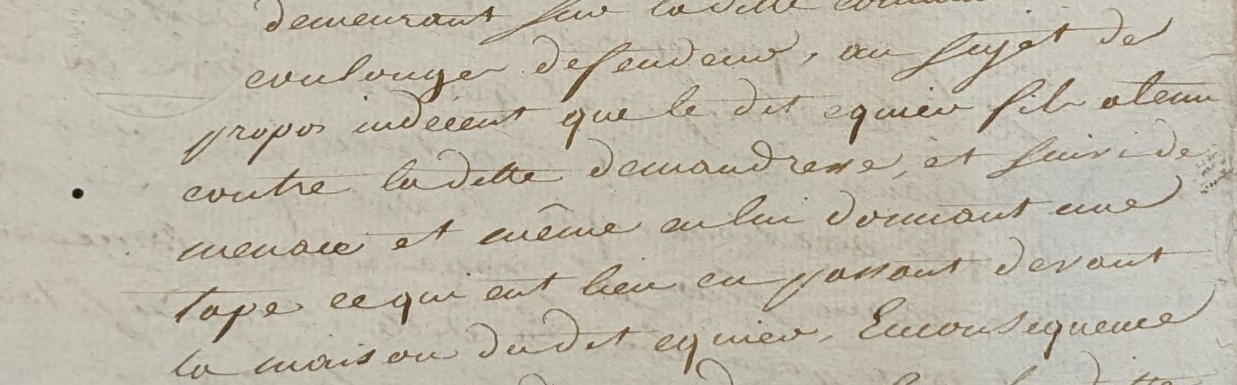 demeurant sur laditte commune
coulonges defendeur, au sujet de
propos indecent que le dit equier fils a tenu
contre laditte demandresse, et suivi de
menace et même en lui donnant une
tape ce qui eut lieu en passant devant
la maison dudit equier, Enconsequence